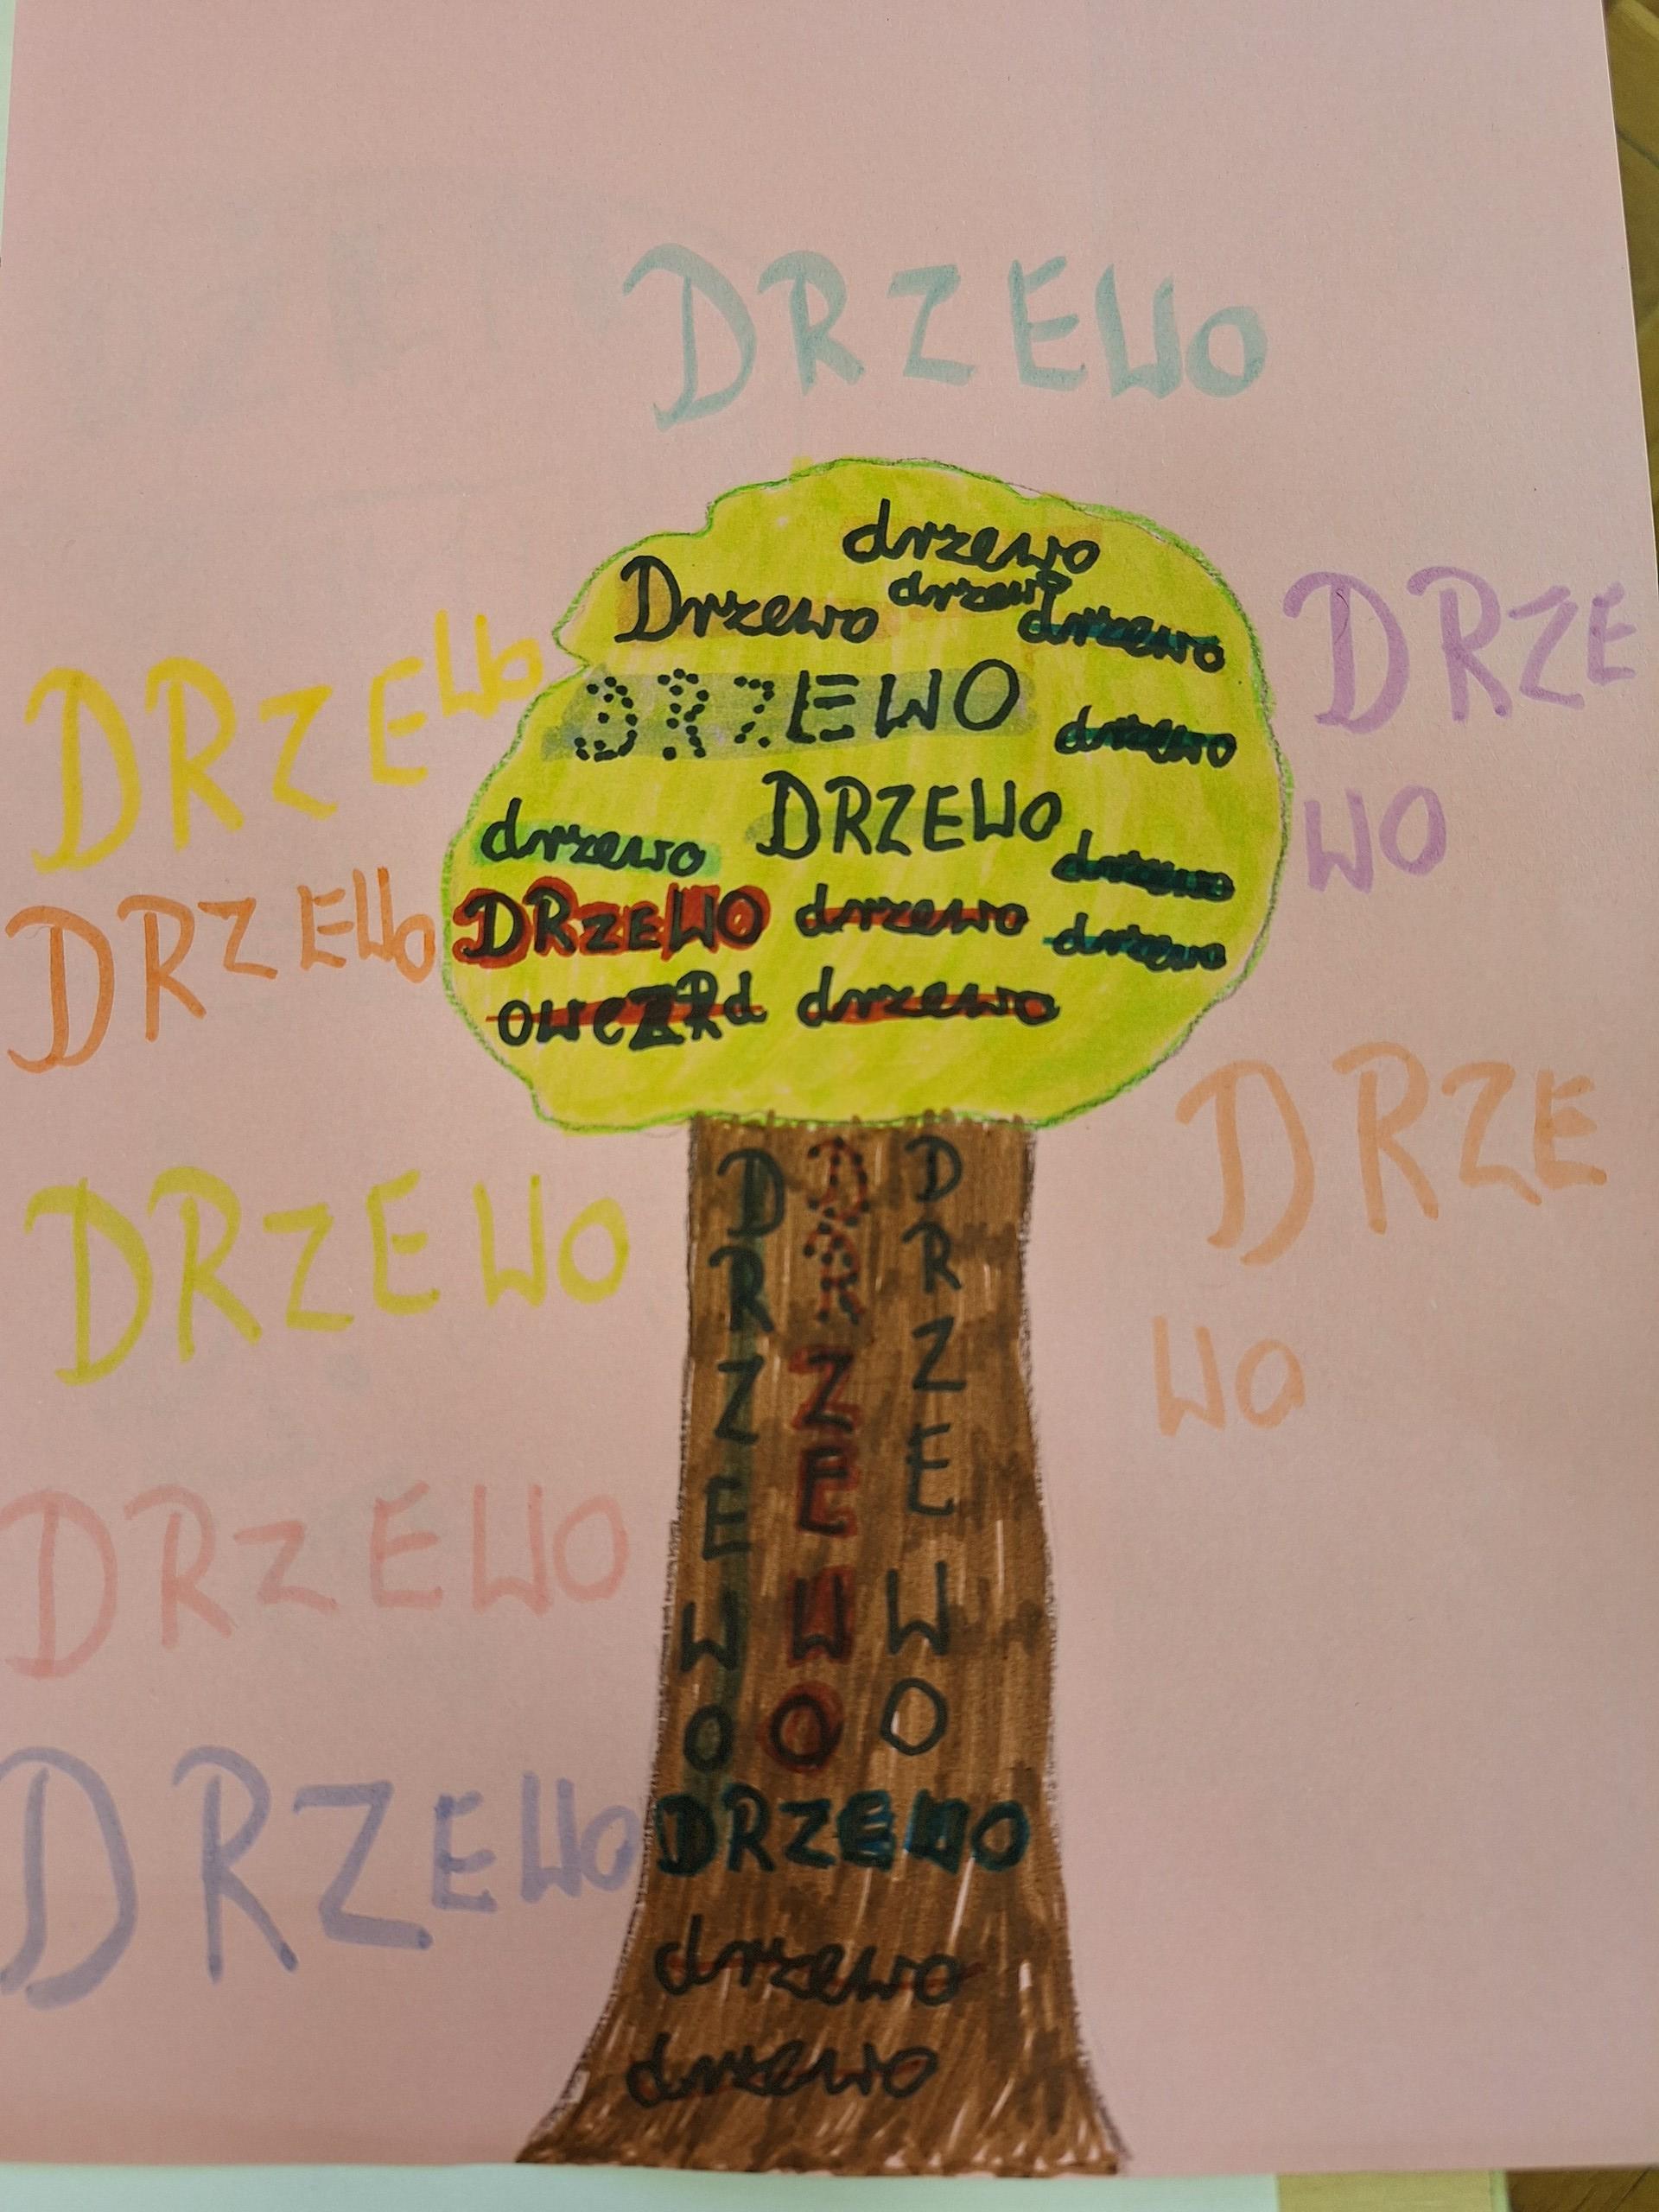 DRZEWO
drzewo
drzewo
Drzewo
drzewo
DRZEWO
drzewo
DRZEWO
drzewo
drzewo
DRZEWO
drzewo
drzewo
oweZRd
drzewo
DRZEWO
DRZEWO
DRZEWO
DRZEWO
DRZEWO
DRZE
WO
DRZE
WO
DRZEWO
DRZEWO
DRZEWO
DRZEWO
drzewo
drzewo